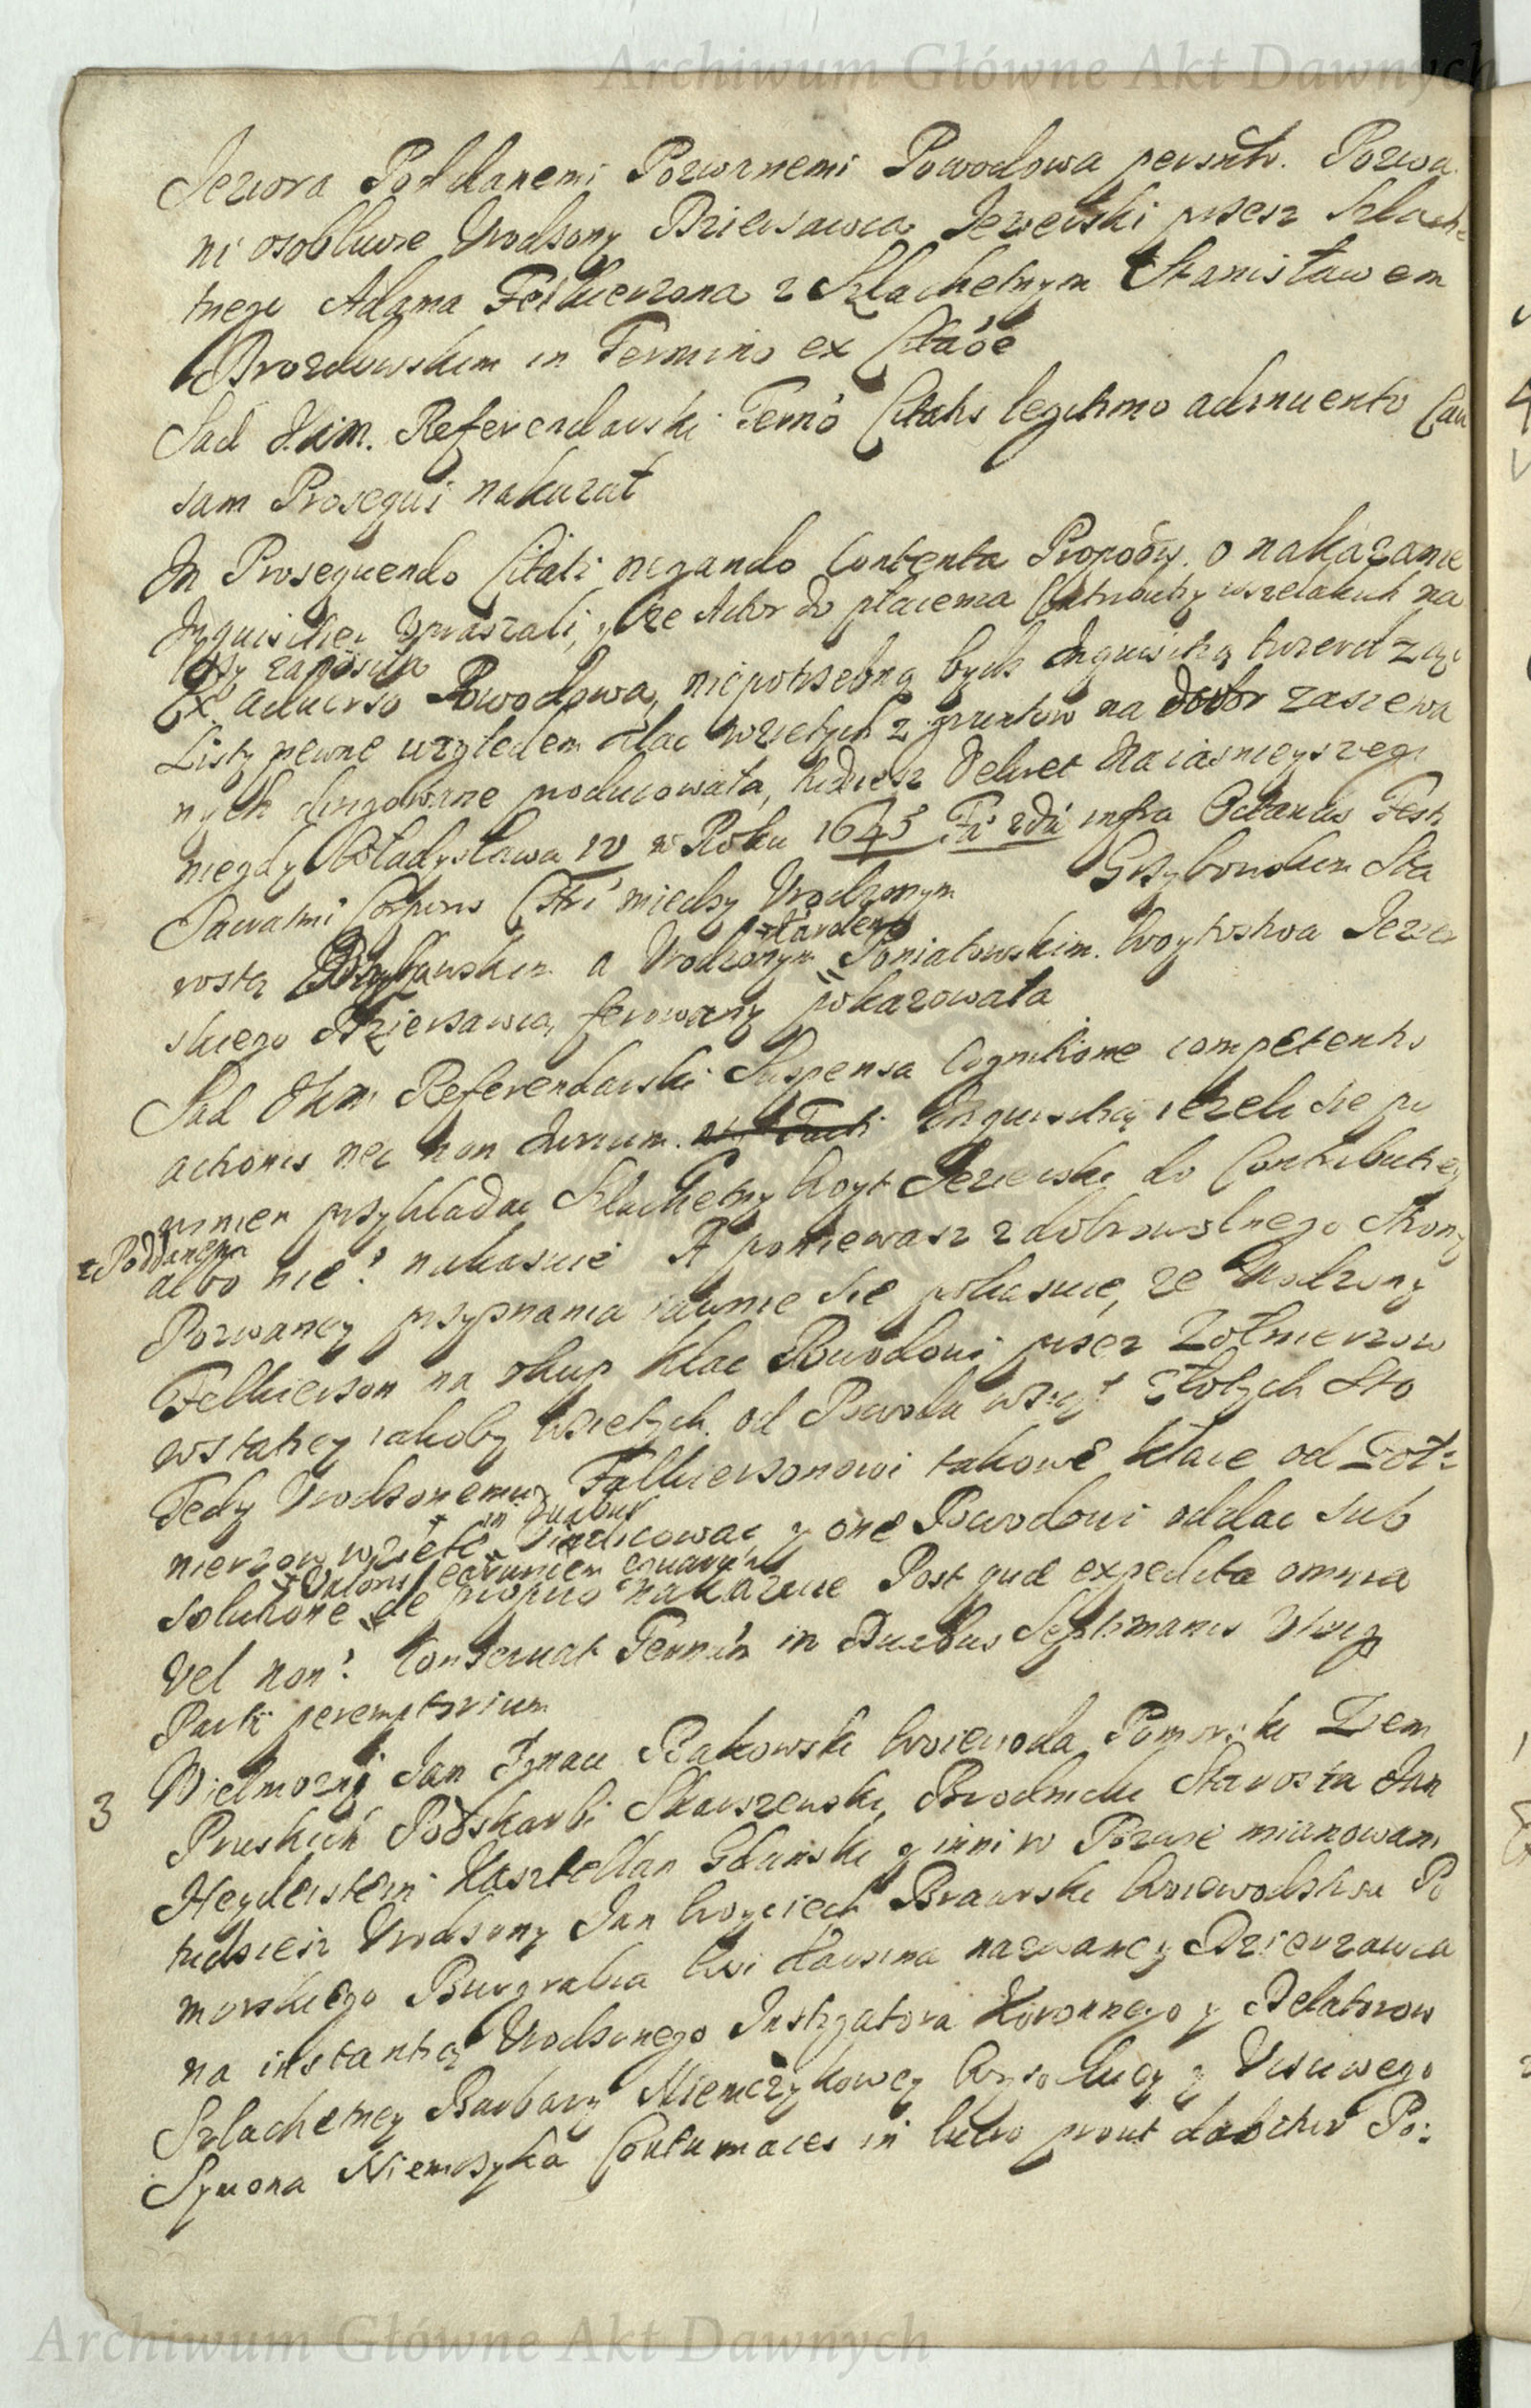 Archiwum Główne Akt Dawnych
Jeziora Poddanemi Pozwanemi Powodowa persntr. Pozwa
ni osobliwie Urodzony Dzierzawca Jezierski przez Szlache
tnego Adama Felkierzona z Szlachetnym Stanisławem
Brozdowskim in Termino ex Citaoe
Sad J.K.M. Referendarski Termo Citatis legitimo adinuento Cau
sam Prosequi nakazał
In Prosequendo Citati negando Contenta Propoois. o nakazanie
Inquisitiei upraszali, y ze Actor do płacenia Contributiy wszelakich na
Ex aduerso Powodowa, niepotrzebną bydz Inquisitią twierdząc
Listy pewne względem klac wzietych z gruntow na dobr zasiewa
nych producowała, tudziesz Dekret Naiasnieyszego
niegdy Władysława IV w Roku 1645 Fr. 2da infra Octauas Festi
Sacratmi Corporis Chri miedzy Urodzonym Grzybowskim Sta
rostą a Urodzonym Poniatowskim Woytostwa Jezier
skiego Dzierzawcą ferowany pokazowała
Sad JKM Referendarski Suspensa Cognitione competentis
actionis nec non Iurium Inquisitią iezeli sie po
winien przykładac Szlachetny Woyt Jezierski do Contributiey
z Poddanemi
albo nie? nakazuie A poniewasz z dobrowolnego Strony
Pozwaney przyznania iawnie sie pokazuie, ze Urodzony
Felkierson na okup klac Powodowi przez Zołnierzow
wstatey iakoby wzietych od Powoda wziął Złotych Sto
Tedy Urodzonemu Falkiersonowi takowe klace od Zoł:
nierzow wziete in duabus vindicowac y one Powodowi oddac sub
solutione Valoris earundem de proprio nakazuie Post quae expedita omnia
Vel non? Conseruat Termin in Duabus Septimanis Utrq
Parti peremptorium
3 Wielmozni Jan Ignac Bakowski Woiewoda Pomorski Ziem
Pruskich Podskarbi Skarszewski, Brodnicki Starosta Jan
Heydeistein Kasztellan Gdanski y inni w Pozwie mianowani
tudziesz Urodzony Jan Woyciech Braurski Woiewodstwa Po
morskiego Burgrabia Wsi nazwaney Dzierzawca
na instantią Urodzonego Instigatora Koronnego y Delatorow
Szlachetney Barbary Niemczykowey Wysoluczy y Usciwego
Symona Niemczyka Contumaces in lucro prout dabitur Po:
Archiwum Główne Akt Dawnych